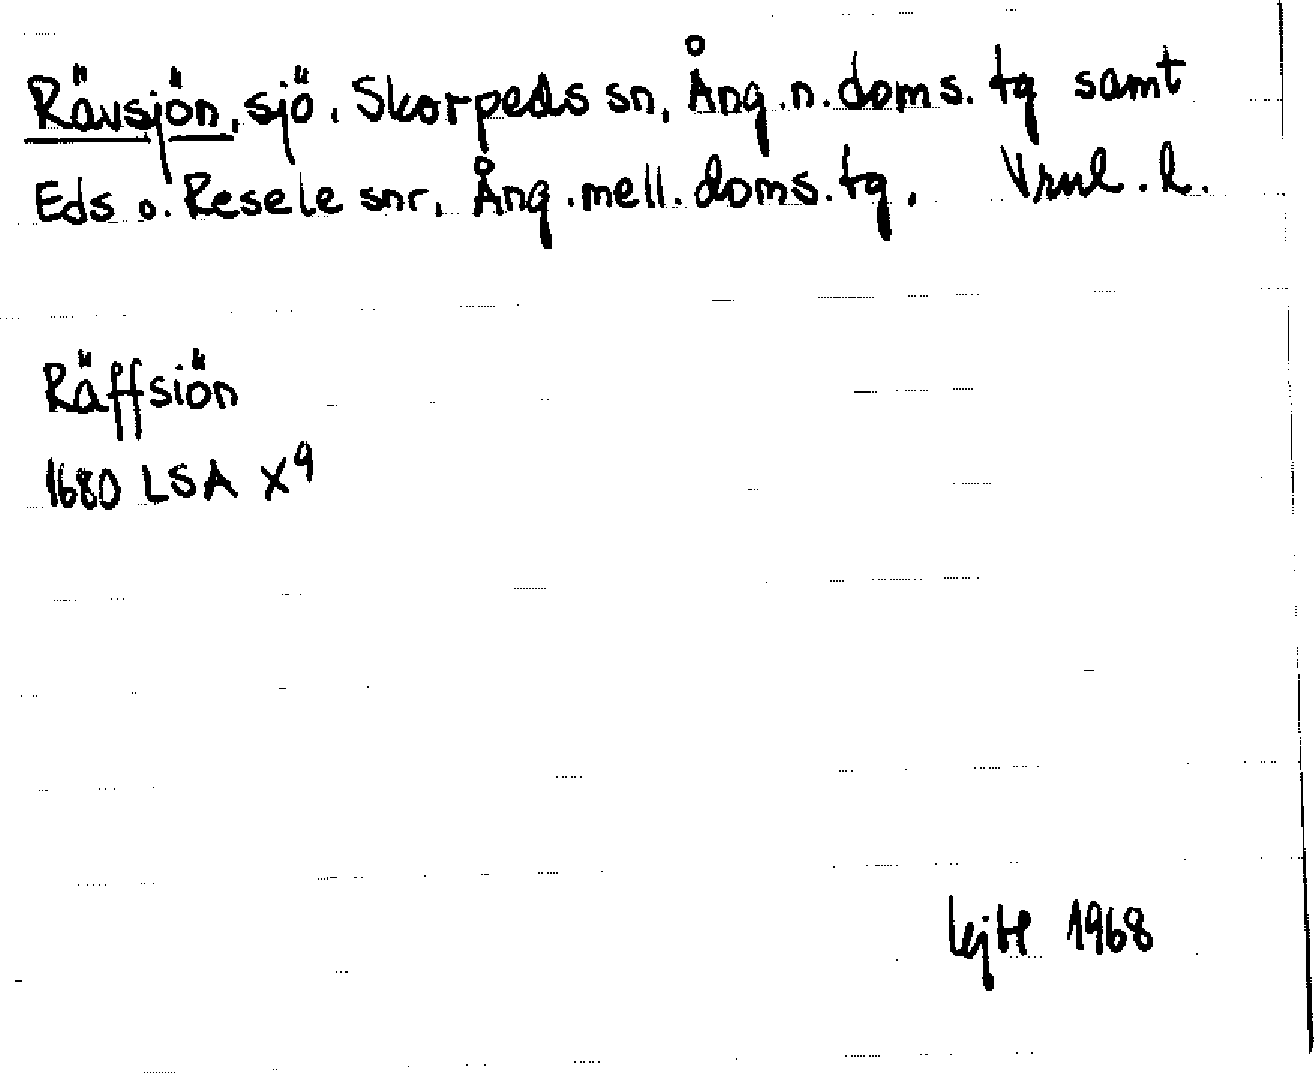 Rävsjön, sjö. Skorpeds sn, Ång. n. doms. tg samt
Eds o. Resele snr, Ång. mell. doms. tg. Vrnl. l.
Räffsiön
1680 LSA X9
1968